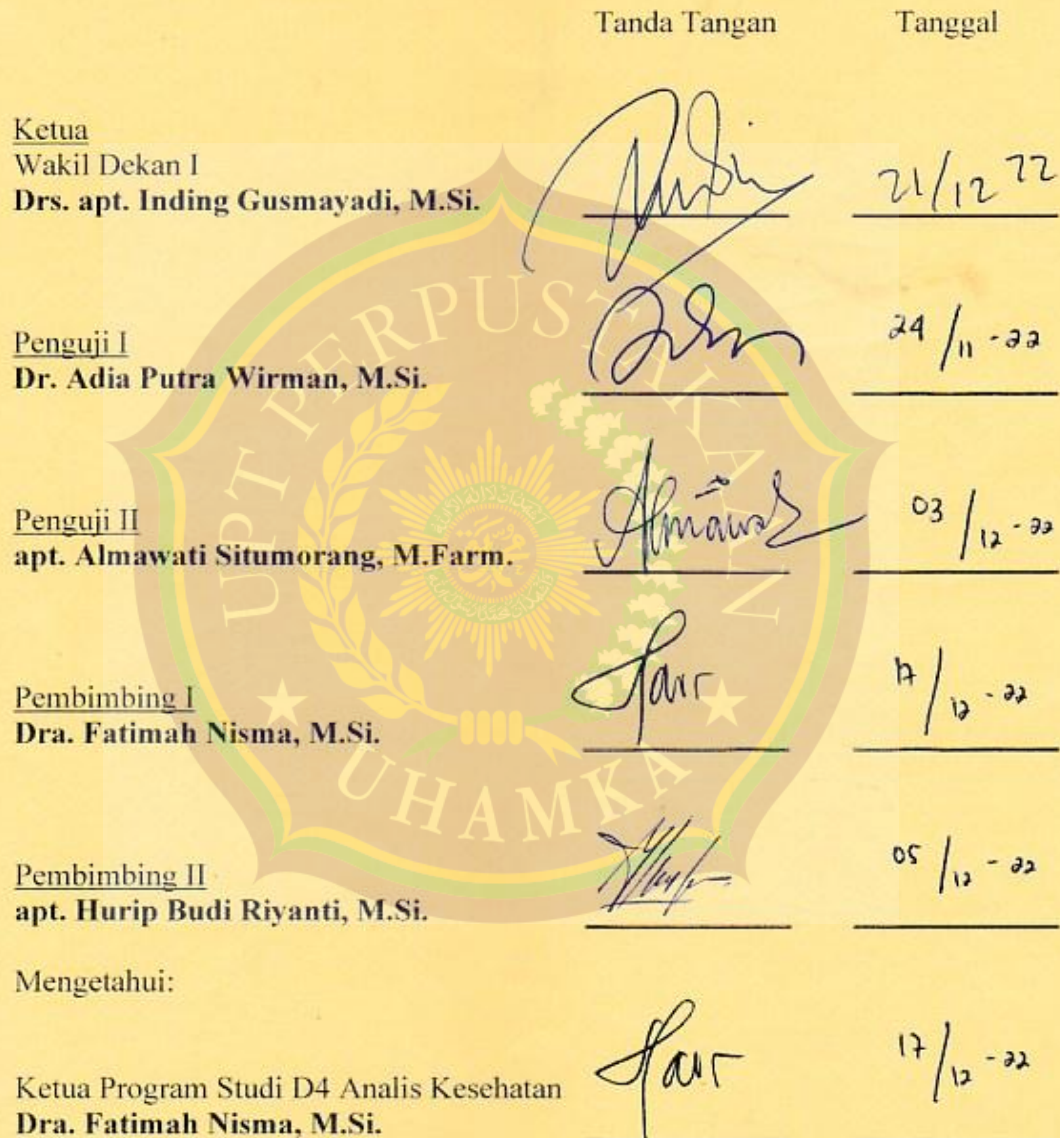 Tanda Tangan Tanggal
Ketua
Wakil Dekan I
Drs. apt. Inding Gusmayadi, M.Si.
21/12 22
Penguji I
Dr. Adia Putra Wirman, M.Si.
24/11-22
Penguji II
apt. Almawati Situmorang, M.Farm.
03/12-22
Pembimbing I
Dra. Fatimah Nisma, M.Si.
17/12-22
Pembimbing II
apt. Hurip Budi Riyanti, M.Si.
05/12-22
Mengetahui:
Ketua Program Studi D4 Analis Kesehatan
Dra. Fatimah Nisma, M.Si.
17/12-22
UPT PERPUSTAKAAN
UHAMKA